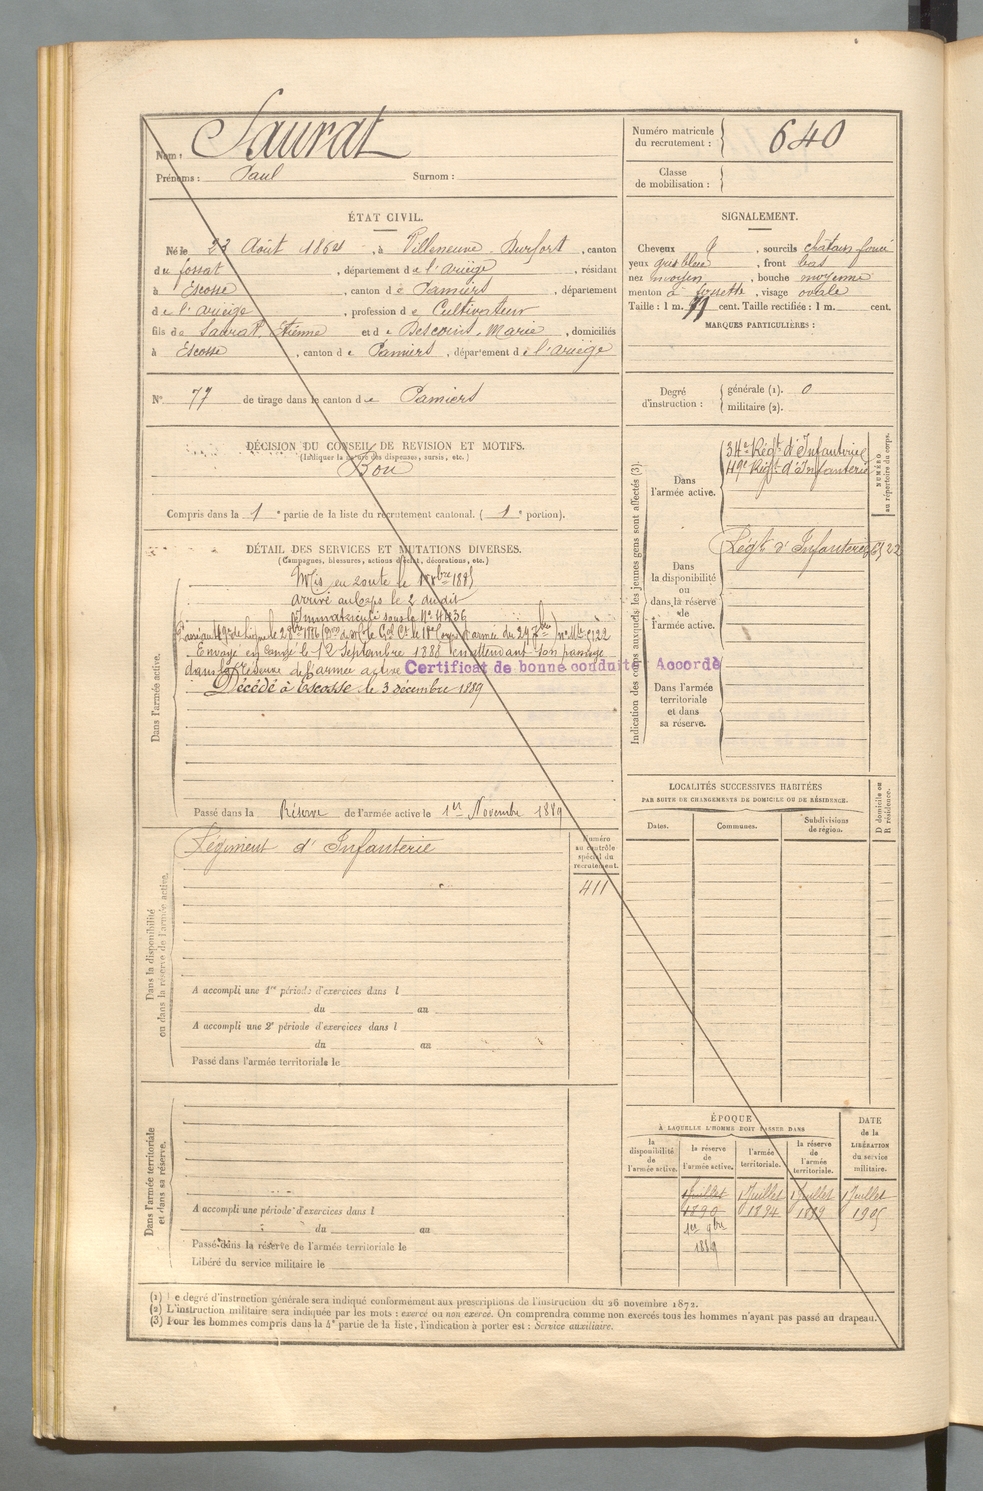 Nom : Saurat
Prénoms : Paul Surnom :
Numéro matricule du recrutement : 640
Classe de mobilisation :
ÉTAT CIVIL.
Né le 23 Août 1864, à Villeneuve Durfort, canton
du fossat, département de l'ariège, résidant
à Escosse, canton de Pamiers, département
de l'ariège, profession de Cultivateur
fils de Saurat, Etienne et de Descouns, Marie, domiciliés
à Escosse, canton de Pamiers, département de l'ariège
SIGNALEMENT.
Cheveux, sourcils châtain foncé
yeux gris bleu, front bas
nez moyen, bouche moyenne
menton à fossette, visage ovale
Taille : 1 m. 71 cent. Taille rectifiée : 1 m. cent.
MARQUES PARTICULIÈRES :
N° 77 de tirage dans le canton de Pamiers
Degré d'instruction : générale (1). 0
militaire (2).
DÉCISION DU CONSEIL DE REVISION ET MOTIFS.
(Indiquer la nature des dispenses, sursis, etc.)
Bon
Compris dans la 1e partie de la liste du recrutement cantonal. (1e portion).
DÉTAIL DES SERVICES ET MUTATIONS DIVERSES.
(Campagnes, blessures, actions d'éclat, décorations, etc.)
Dans l'armée active.
Mis en route le 1er Xbre 1885
arrivé au corps le 2 dudit
Immatriculé sous le N° 4436
Envoyé en congé le 12 Septembre 1888 en attendant son passage
dans la réserve de l'armée active Certificat de bonne conduite Accordé
Décédé à Escosse le 3 décembre 1889
Passé dans la Réserve de l'armée active le 1er Novembre 1889
Indication des corps auxquels les jeunes gens sont affectés (3).
Dans l'armée active.
34e Régt d'Infanterie
49e Régt d'Infanterie
NUMÉRO au répertoire du corps.
Dans la disponibilité ou dans la réserve de l'armée active.
Régt d'Infanterie
Dans l'armée territoriale et dans sa réserve.
Dans la disponibilité ou dans la réserve de l'armée active.
Régiment d'Infanterie
Numéro au contrôle spécial du recrutement.
411
A accompli une 1re période d'exercices dans l
du au
A accompli une 2e période d'exercices dans l
du au
Passé dans l'armée territoriale le
LOCALITÉS SUCCESSIVES HABITÉES
PAR SUITE DE CHANGEMENTS DE DOMICILE OU DE RÉSIDENCE.
Dates. Communes. Subdivisions de région. D domicile ou R résidence.
Dans l'armée territoriale et dans sa réserve.
A accompli une période d'exercices dans l
du au
Passé dans la réserve de l'armée territoriale le
Libéré du service militaire le
ÉPOQUE
À LAQUELLE L'HOMME DOIT PASSER DANS
la disponibilité de l'armée active.
la réserve de l'armée active.
l'armée territoriale.
la réserve de l'armée territoriale.
DATE de la LIBÉRATION du service militaire.
1 Juillet 1 Juillet 1 Juillet 1 Juillet
1890 1894 1899 1905
1er 9bre
1889
(1) Le degré d'instruction générale sera indiqué conformément aux prescriptions de l'instruction du 26 novembre 1872.
(2) L'instruction militaire sera indiquée par les mots : exercé ou non exercé. On comprendra comme non exercés tous les hommes n'ayant pas passé au drapeau.
(3) Pour les hommes compris dans la 4e partie de la liste, l'indication à porter est : Service auxiliaire.